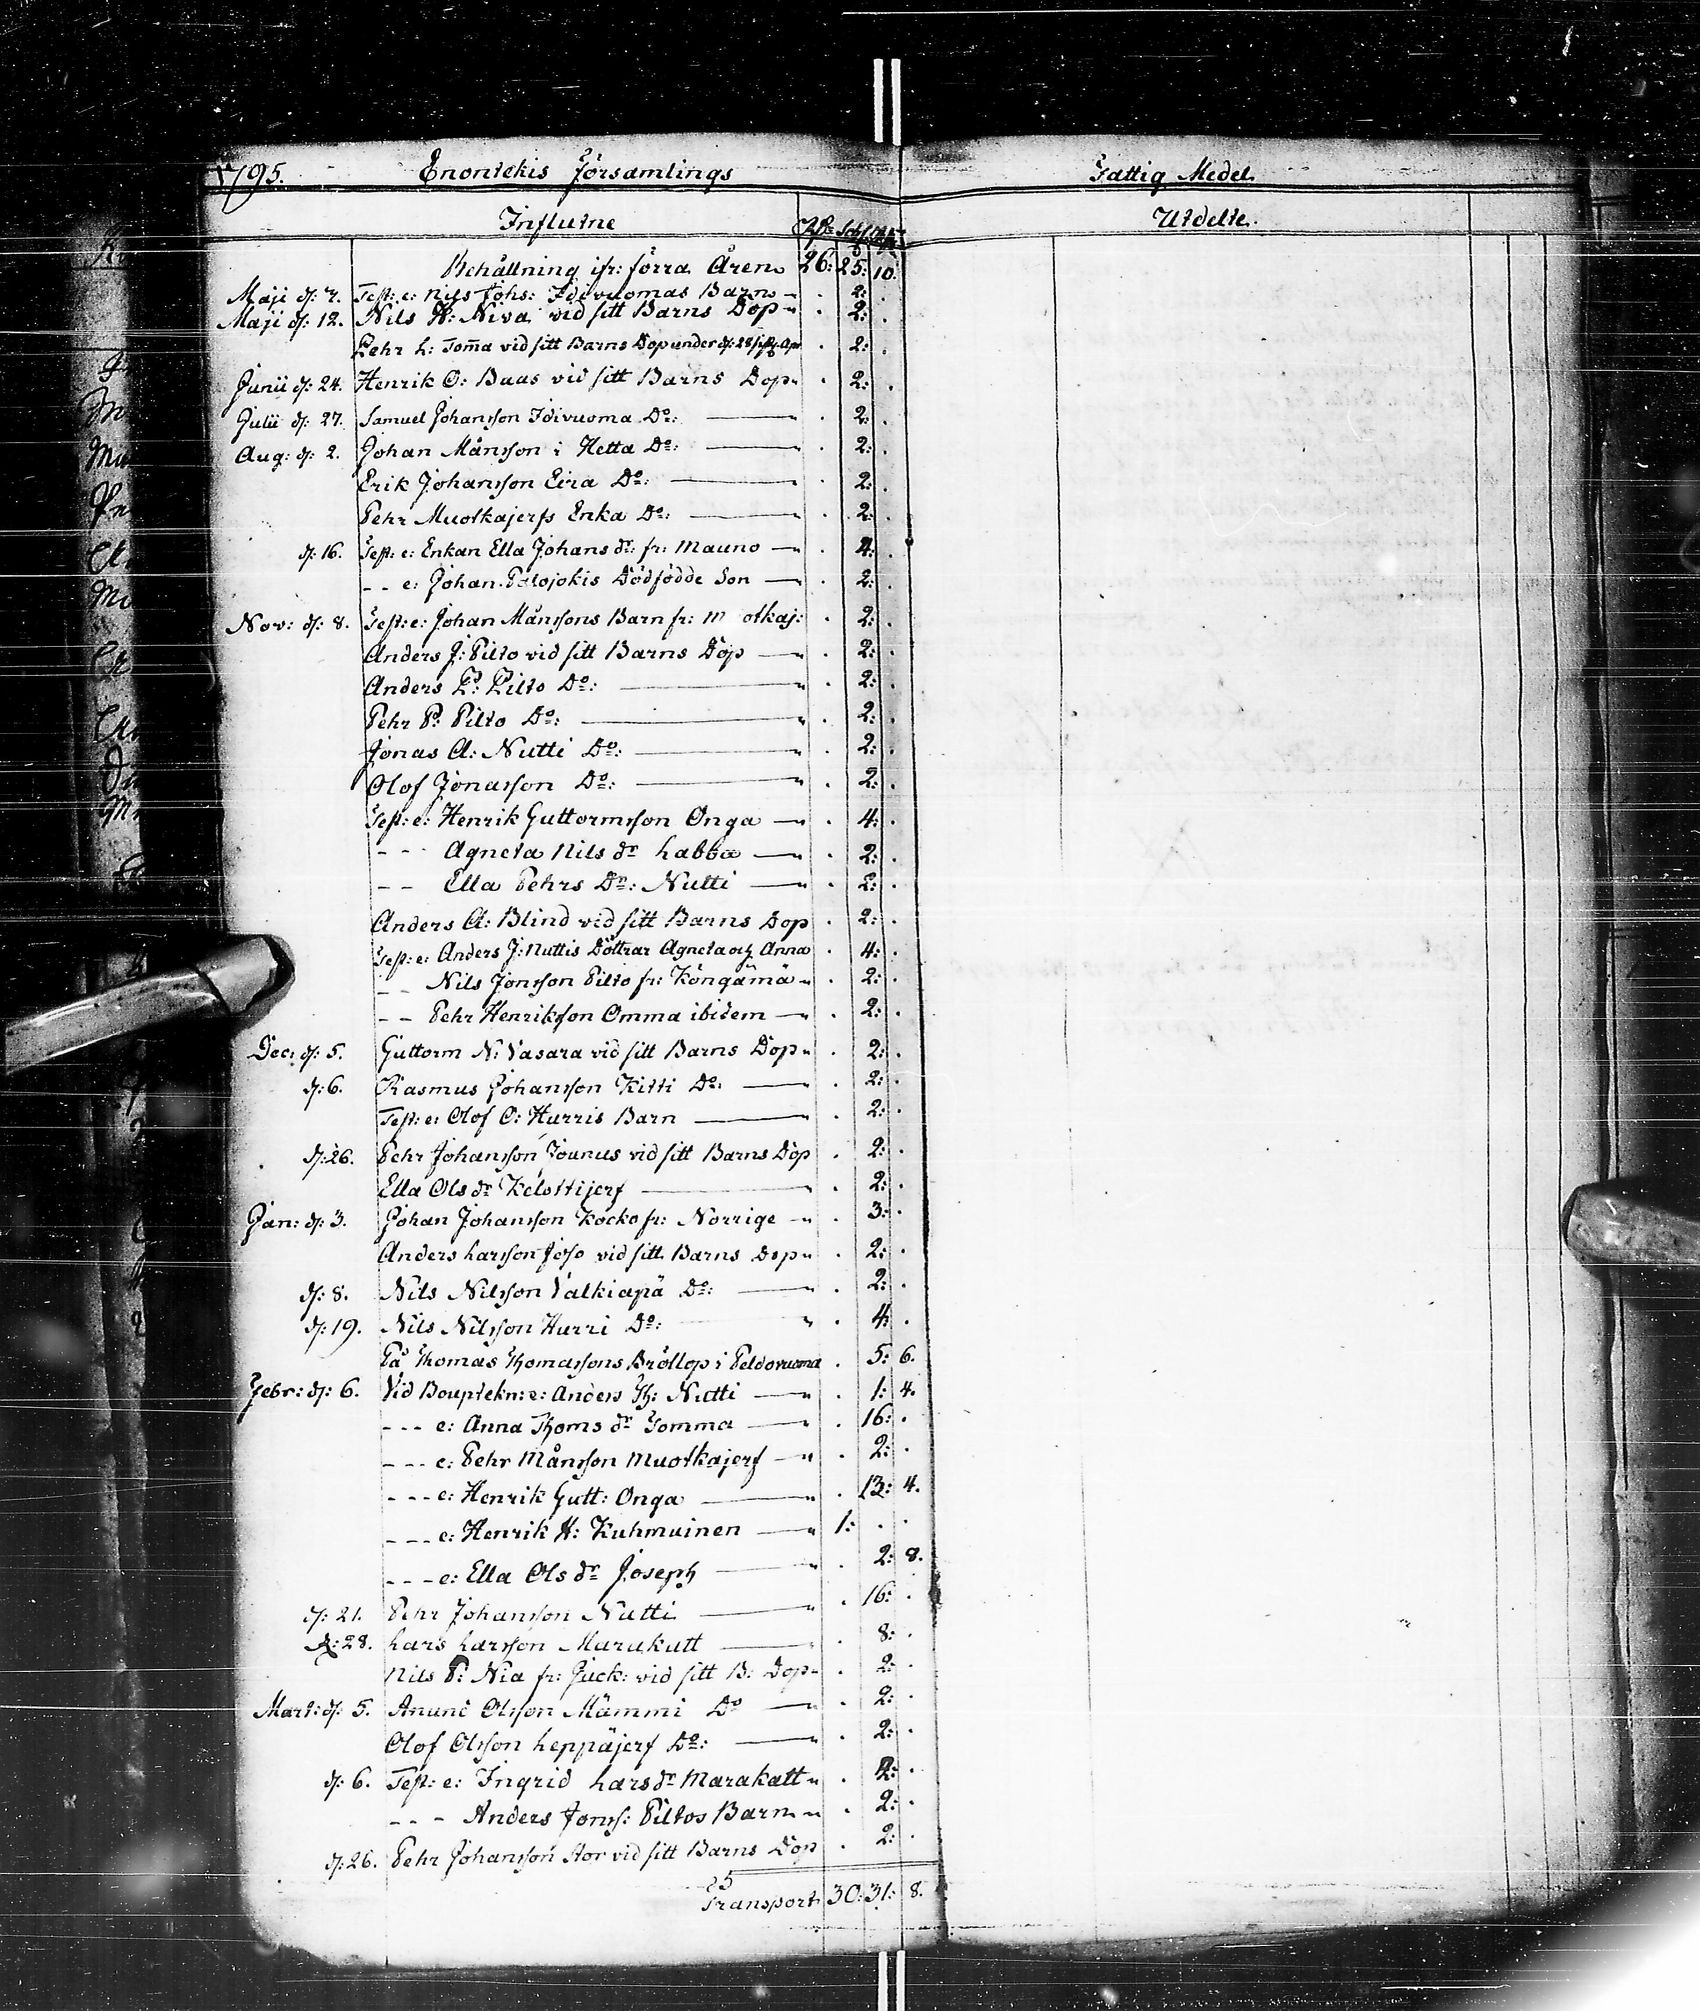 1795. Enontekis Församlings Fattig Medel.
Influtne Rdr Sch: Utdelte.
Behållning ifr: förra Åren 26: 25: 10:
Maji d: 7. Test: e: Nils Johs: Idivuomas Barn 2:
Maji d: 12. Nils H: Niva vid sitt Barns Dop 2:
Pehr L: Tom̄a vid sitt Barns Dop under d: 28 2:
Junii d: 24. Henrik O: Baas vid sitt Barns Dop 2:
Julii d: 27. Samuel Johansson Idivuoma Do: 2:
Aug: d: 2. Johan Månsson i Hetta Do: 2:
Erik Johansson Eira Do: 2:
Pehr Muotkajerfs Enka Do: 2:
d: 16. Test: e: Enkan Ella Johans dr: fr: Mauno 4:
- - e: Johan Palojokis Dödfödde Son 2:
Nov: d: 8. Test: e: Johan Månssons Barn fr: M otkaj: 2:
Anders J: Pilto vid sitt Barns Dop 2:
Anders P: Pilto Do: 2:
Pehr P: Pilto Do: 2:
Jonas A: Nutti Do: 2:
Olof Jonasson Do: 2:
Test: e: Henrik Guttormsson Onga 4:
- - Agneta Nils dr Labba 2:
- - Ella Pehrs Dr: Nutti 2:
Anders A: Blind vid sitt Barns Dop 2:
Test: e: Anders J: Nuttis Döttrar Agneta och Anna 4:
- - Nils Jonsson Pilto fr: Köngämä 2:
- - Pehr Henriksson Omma ibidem 2:
Dec: d: 5. Guttorm N: Vasara vid sitt Barns Dop 2:
d: 6. Rasmus Johansson Kitti Do: 2:
Test: e: Olof O: Hurris Barn 2:
d: 26. Pehr Johansson Jounus vid sitt Barns Dop 2:
Ella Ols dr Kelottijerf 2:
Jan: d: 3. Johan Johansson Kocko fr: Norrige 3:
Anders Larsson Joso vid sitt Barns Dop 2:
d: 8. Nils Nilsson Valkiapä Do: 2:
d: 19. Nils Nilsson Hurri Do: 4:
På Thomas Thomassons Bröllop i Peldovuoma 5: 6.
Febr: d: 6. Vid Bouptekn: e: Anders Th: Nutti 1: 4.
- - - e: Anna Thoms dr Tomma 16:
- - - e: Pehr Månsson Muotkajerf 2:
- - - e: Henrik Gutt: Onga 13: 4.
- - - e: Henrik H: Kuhmuinen 1:
- - - e: Ella Ols dr Joseph 2: 8.
d: 21. Pehr Johansson Nutti 16:
d: 28. Lars Larsson Marakatt 8:
Nils P: Nia fr: Juck: vid sitt B: Dop 2:
Mart: d: 5. Anund Olsson Mämmi Do 2:
Olof Olsson Leppäjerf Do: 2:
d: 6. Test: e: Ingrid Lars dr Marakatt 2:
- - - Anders Jonss: Piltos Barn 2:
d: 26. Pehr Johansson Stor vid sitt Barns Dop 2:
Transport 30: 31: 8.